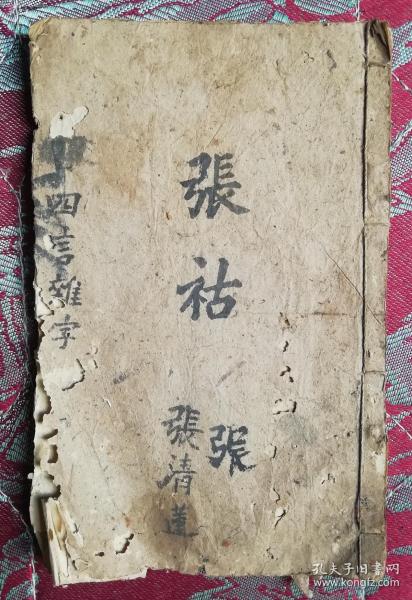 四言雜字
張祜
張
張清蓮
孔夫子旧书网
www.kongfz.com